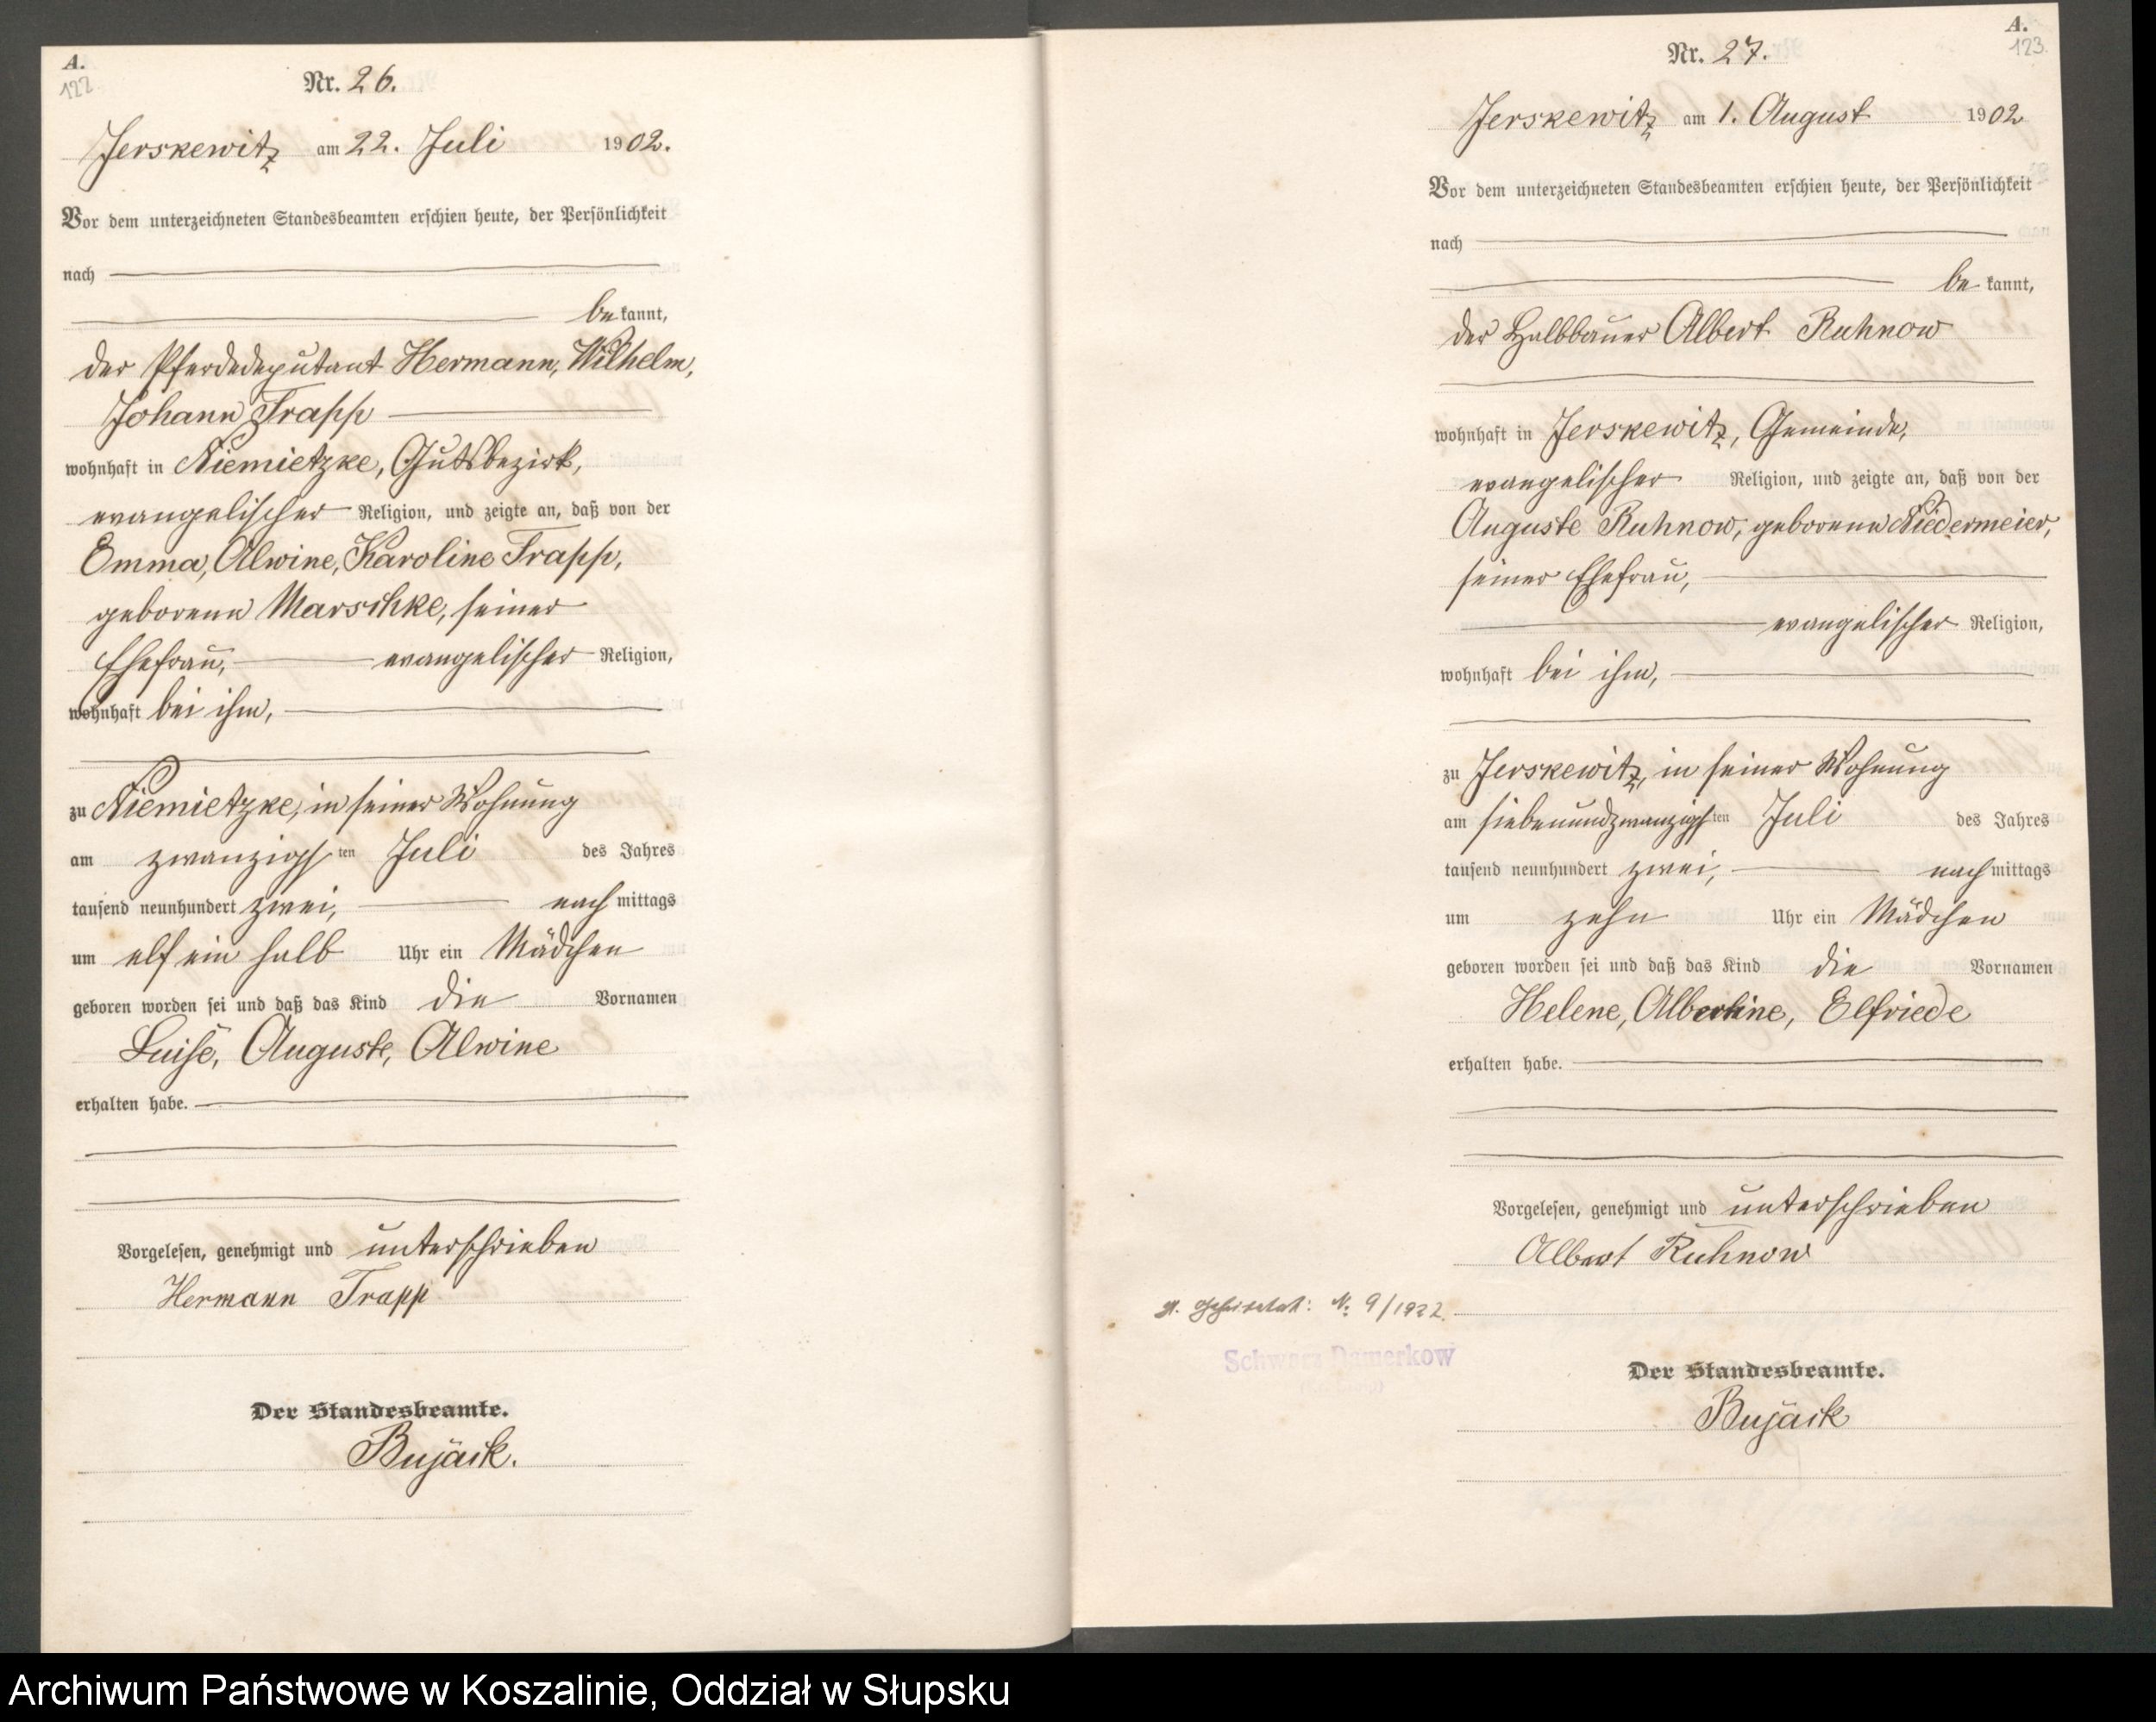 A.
122
Nr. 26.
Jerskewitz am 22. Juli 1902.
Vor dem unterzeichneten Standesbeamten erschien heute, der Persönlichkeit
nach
be kannt,
der Pferdedeputant Hermann, Wilhelm,
Johann Trapp
wohnhaft in Niemietzke, Gutsbezirk,
evangelischer Religion, und zeigte an, daß von der
Emma, Alwine, Karoline Trapp,
geborenen Marschke, seiner
Ehefrau, evangelischer Religion,
wohnhaft bei ihm,
zu Niemietzke, in seiner Wohnung
am zwanzigsten Juli des Jahres
tausend neunhundert zwei, nach mittags
um elf ein halb Uhr ein Mädchen
geboren worden sei und daß das Kind die Vornamen
Luise, Auguste, Alwine
erhalten habe.
Vorgelesen, genehmigt und unterschrieben
Hermann Trapp
Der Standesbeamte.
Bujack.
A.
123.
Nr. 27.
Jerskewitz am 1. August 1902
Vor dem unterzeichneten Standesbeamten erschien heute, der Persönlichkeit
nach
be kannt,
der Halbbauer Albert Ruhnow
wohnhaft in Jerskewitz, Gemeinde,
evangelischer Religion, und zeigte an, daß von der
Auguste Ruhnow, geborenen Niedermeier,
seiner Ehefrau,
evangelischer Religion,
wohnhaft bei ihm,
zu Jerskewitz, in seiner Wohnung
am siebenundzwanzigsten Juli des Jahres
tausend neunhundert zwei, nach mittags
um zehn Uhr ein Mädchen
geboren worden sei und daß das Kind die Vornamen
Helene, Albertine, Elfriede
erhalten habe.
Vorgelesen, genehmigt und unterschrieben
Albert Ruhnow
N: 9/1922.
Schwarz Damerkow
Der Standesbeamte.
Bujack
Archiwum Państwowe w Koszalinie, Oddział w Słupsku